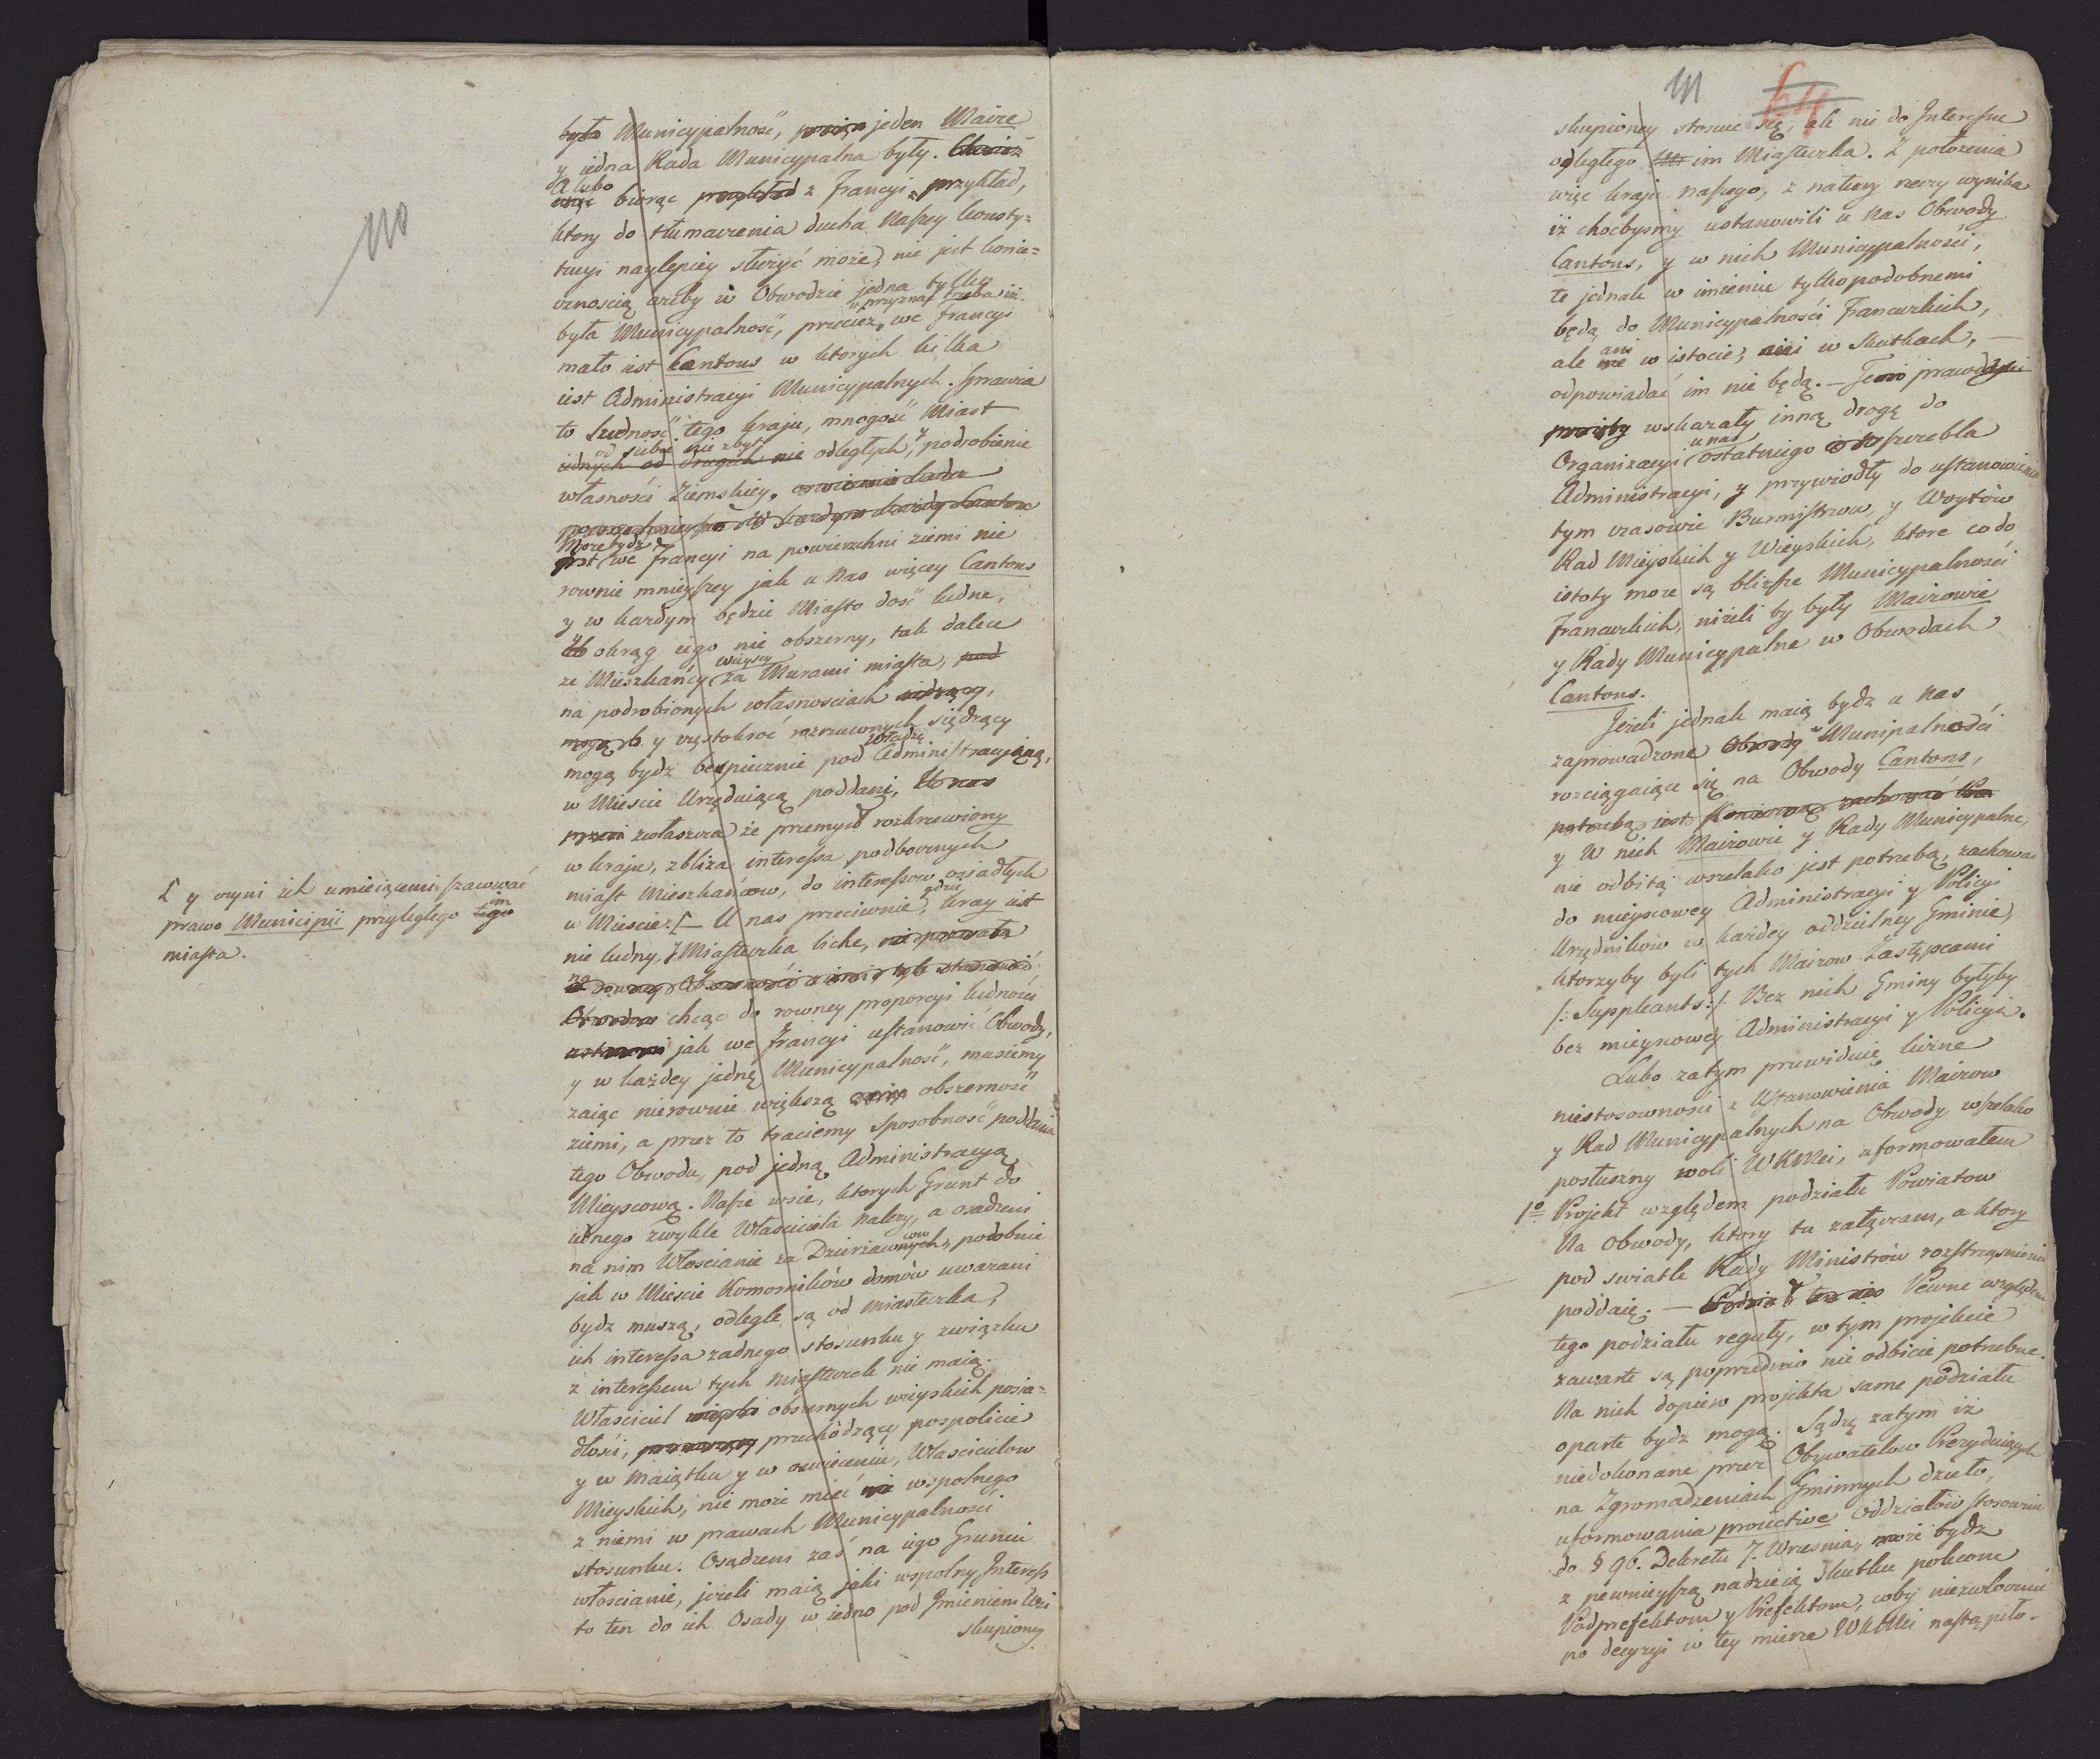 110
było Municypalność, jeden Maire
y iedna Rada Municypalna były.
A lubo
biorąc przykład z Francyi przykład,
ktory do tłumaczenia ducha Naszey konsty=
tucyi naylepiey służyć może, nie jest koniec=
cznością ażeby w Obwodzie jedna tylko
przyznać trzeba iż
była Municypalność, przecież we Francyi
mało iest Cantons w ktorych kilka
iest Administracyi Municypalnych. Sprawia
to ludność tego kraju, mnogość Miast
od siebie nie zbyt
iednych od drugich nie odległych, y podrobienie
własności Ziemskiey.
Może bydź
jest we Francyi na powierzchni ziemi nie
rownie mnieyszey jak u Nas więcey Cantons
y w każdym będzie Miasto dość ludne,
y okrąg iego nie obszerny, tak dalece
wieyscy
ze Mieszkańcy za Murami miasta, pod
na podrobionych własnościach siedzący,
mogą b y częstokroć rozrzuconych siędzący
władzę
mogą bydz bezpiecznie pod Administracyiną,
w Mieście Urzęduiącą poddani, U nas
zwłaszcza że przemysł rozkrzewiony
w kraju, zbliża interessa pobocznych
miast Mieszkańcow, do interessow osiadłych
gdzie
w Mieście: [ — U nas przeciwnie, kray iest
nie ludny, y Miasteczka liche,
[ y czyni ich umieiącemi szacować
im
prawo Municipii przyległego tego
miasta.
Obwodow chcąc do rowney proporcyi ludności
jak we Francyi ustanowić Obwody,
y w każdey jednę Municypalność, musiemy
zaiąc nierownie większą obszerność
ziemi, a przez to traciemy sposobność poddania
tego Obwodu, pod jedną Administracyą
Mieyscową. Nasze wsie, ktorych Grunt do
iednego zwykle Właściciela należy, a osadzeni
na nim Włościanie za Dzierżawcow, podobnie
jak w Mieście Komorników domów uważani
bydz muszą, odległe są od miasteczka,
ich interessa żadnego stosunku y związku
z interessem tych miasteczek nie maią.
Właściciel obszernych wieyskich posia=
dłości, przechodzący pospolicie
y w maiątku y w oświeceniu, Właścicielow
Mieyskich, nie może mieć wspolnego
z niemi w prawach Municypalności
stosunku. Osądzeni zaś na iego Gruncie
włościanie, jeżeli maią jaki wspolny Interess
to ten do ich Osady w iedno pod Imieniem Wsi
skupioney
111
64
skupioney stosuie się, ale nie do Interesu
odległego im Miasteczka. Z położenia
więc kraju naszego, z natury rzeczy wynika
iż choćbysmy ustanowili u Nas Obwody
Cantons, y w nich Municypalności,
te jednak w imieniu tylko podobnemi
będą do Municypalności Francuzkich,
ani
ale nie w istocie, ani w skutkach, —
odpowiadać im nie będą. — Te prawdy
wskazały inną drogę do
u nas
Organizacyi ostatniego szczebla
Administracyi, y przywiodły do ustanowienia
tym czasowie Burmistrzow, y Woytów
Rad Mieyskich y Wieyskich, ktore co do
istoty może są bliższe Municypalności
Francuzkich, niżeli by były Mairowie
y Rady Municypalne w Obwodach
Cantons.
Jeżeli jednak maią bydz u Nas
zaprowadzone Obwody Municipalności
rozciągaiące się na Obwody Cantons,
potrzebą iest zachować
y w nich Mairowie y Rady Municypalne,
nie odbitą wszelako jest potrzebą, zachować
do mieyscowey Administracyi y Policyi
Urzędników w każdey oddzielney Gminie,
ktorzyby byli tych Mairow Zastępcami
/: Suppleants :/ Bez nich Gminy byłyby
bez mieyscowey Administracyi y Policyi.
Lubo zatym przewiduię liczne
niestosowności z Ustanowienia Mairow
y Rad Municypalnych na Obwody wszelako
posłuszny woli WKMci, uformowałem
1º Projekt względem podziału Powiatow
Na Obwody, ktory tu załączam, a ktory
pod światłe Rady Ministrów rozstrząśnienie
poddaię. — Pewne względem
tego podziału reguły, w tym projekcie
zawarte są poprzedniczo nie odbicie potrzebne.
Na nich dopiero projekta same podziału
oparte bydz mogą. Sądzę zatym iż
niedokonane przez Obywatelow Prezyduiących
na Zgromadzeniach Gminnych dzieło,
uformowania proiective oddziałów stosownie
do § 96. Dekretu 7. Września, może bydz
z pewnieyszą nadzieią skutku polecone
Podprefektom y Prefektom, coby niezwłocznie
po decyzyi w tey mierze WKMci nastąpiło.